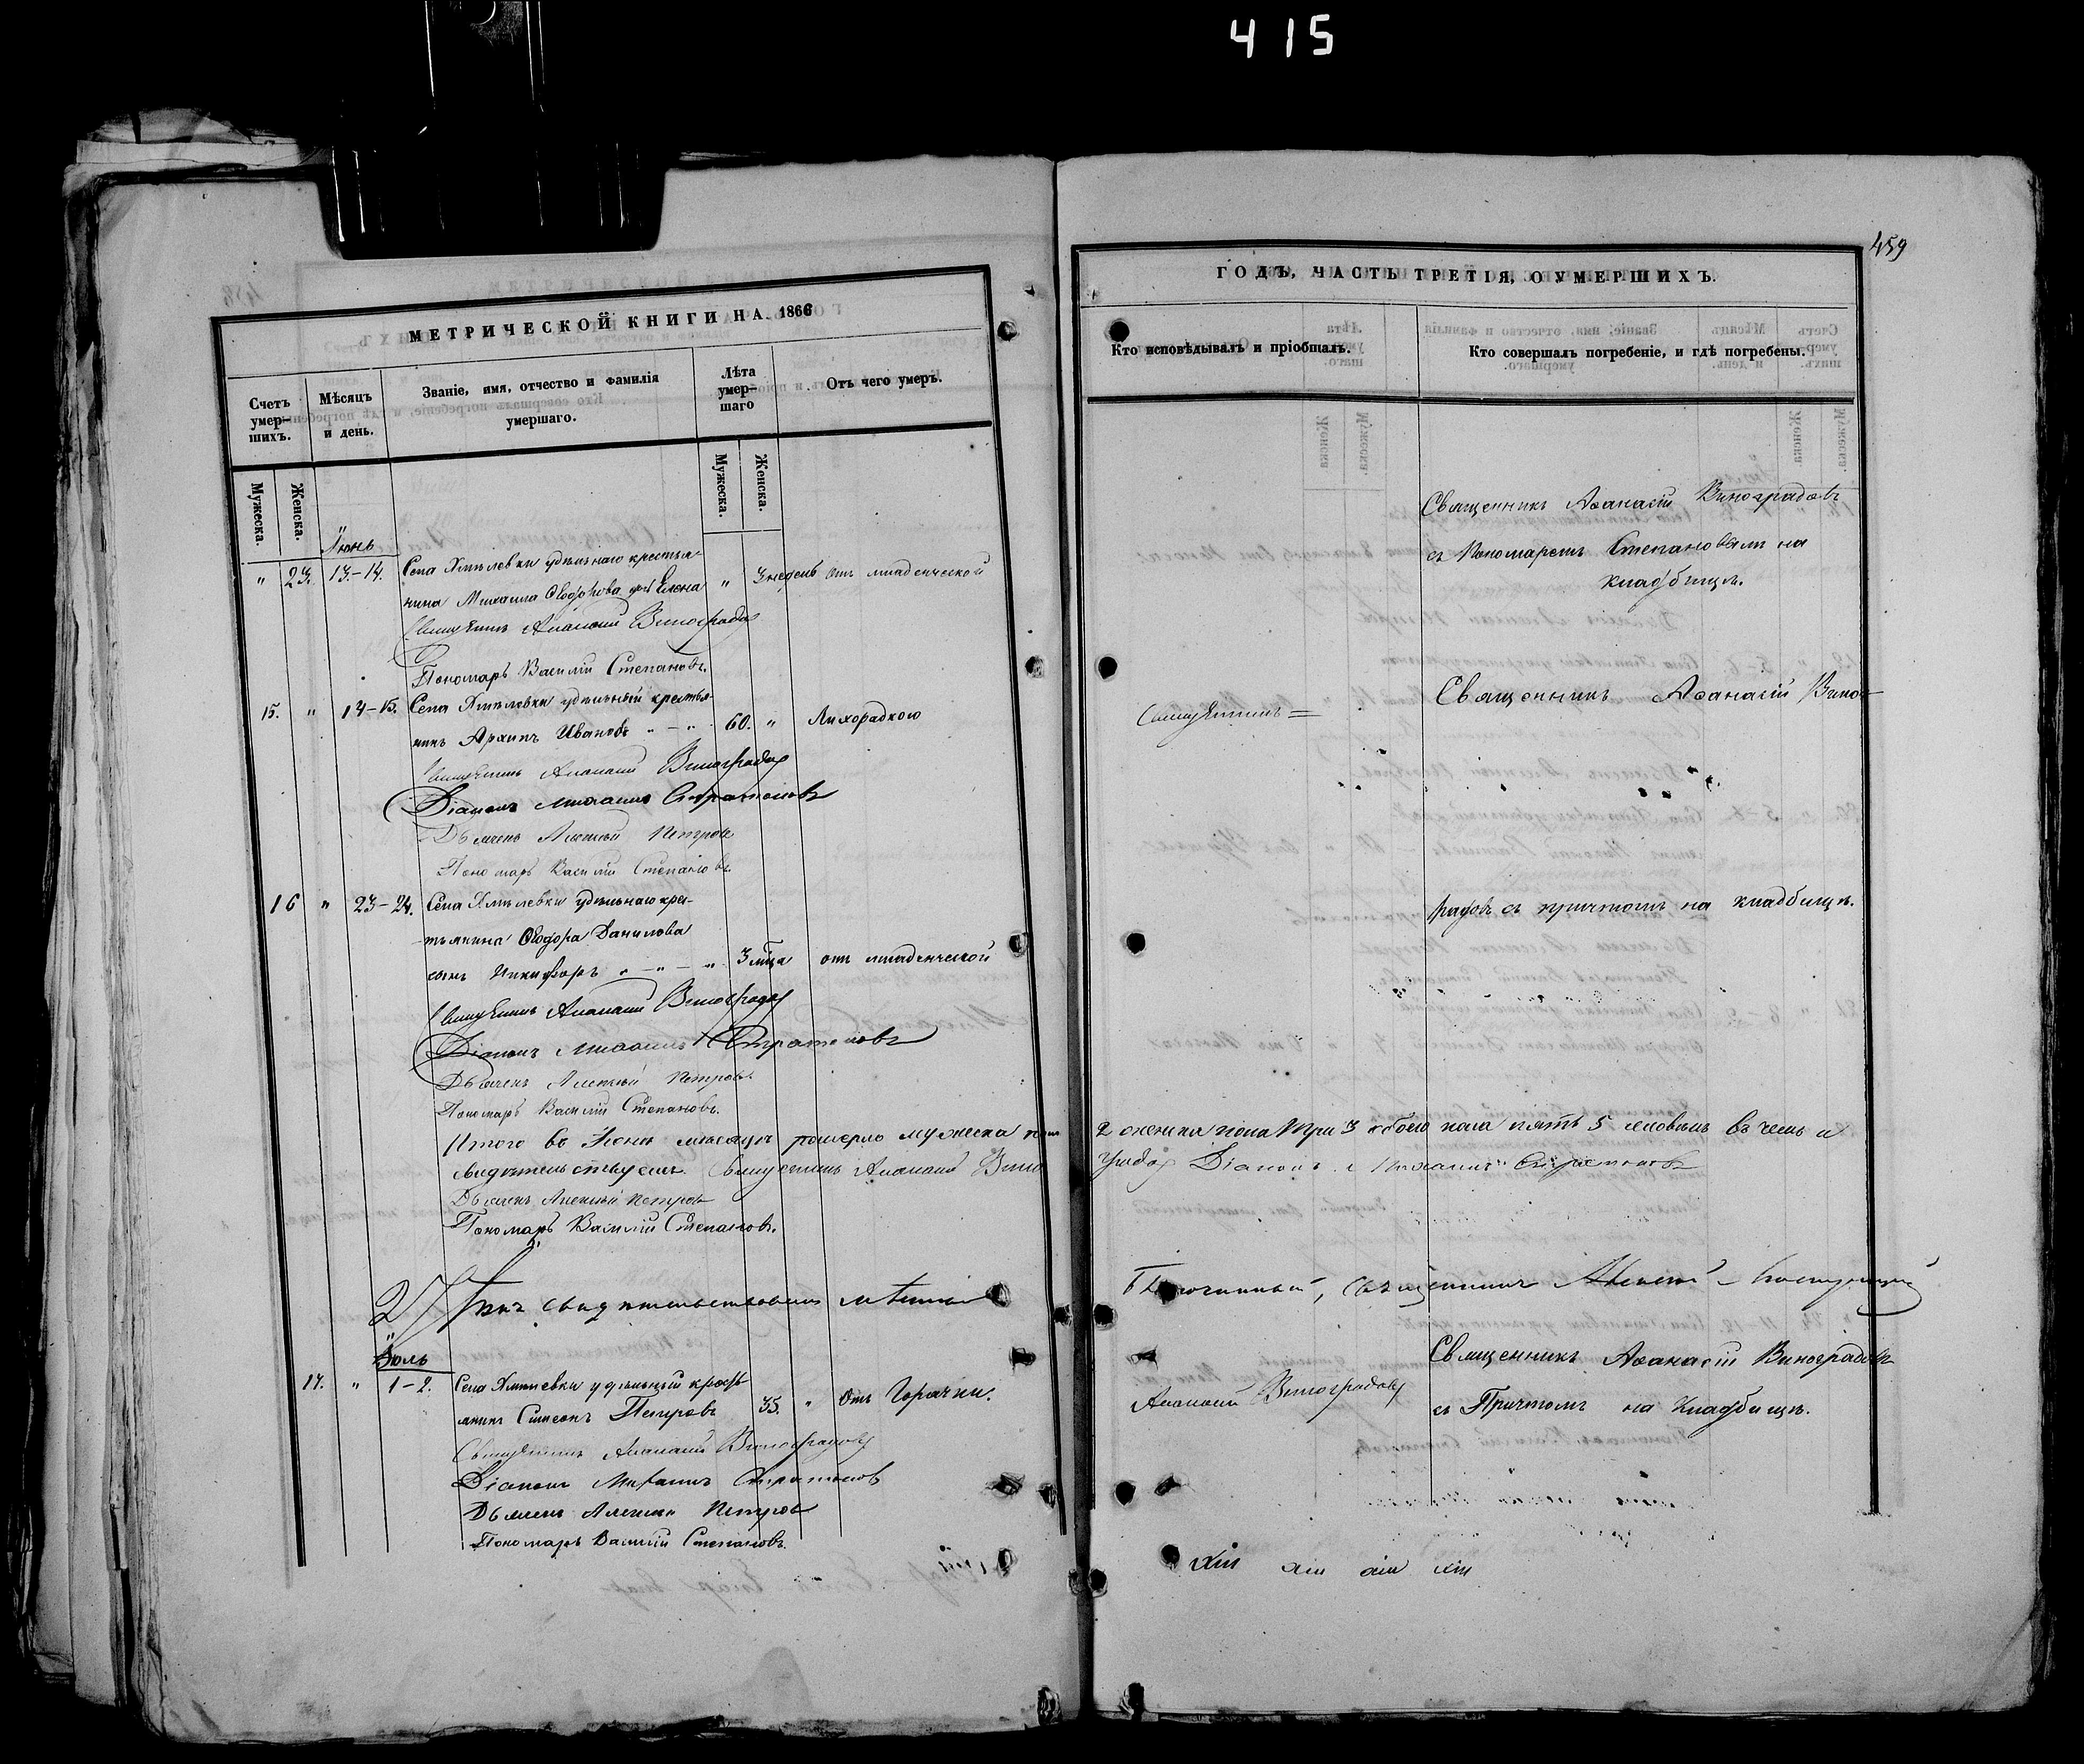 415
МЕТРИЧЕСКОЙ КНИГИ НА 1866
Счетъ умер-шихъ.
Мѣсяцъ и день.
Званіе, имя, отчество и фамилія умершаго.
Лѣта умер-шаго
Отъ чего умеръ.
Мужеска.
Женска.
Мужеска.
Женска.
Іюнь
" 23. 13.-14. Села Хмѣлевки удѣльнаго крестья-
нина Михаила Ѳедорова дочь Елена " 3 недель Отъ младенческой
Священникъ Аѳанасій Виноградовъ
Пономарь Василій Степановъ.
15. " 14-15. Села Хмѣлевки удѣльный крестья-
нинъ Архипъ Ивановъ " - " 60. " Лихорадкою
Священникъ Аѳанасій Виноградовъ
Діаконъ Михаилъ Стратоновъ
Дьячекъ Алексѣй Петровъ
Пономарь Василій Степановъ
16 " 23-24. Села Хмѣлевки удѣльнаго кре-
тьянина Ѳедора Данилова
сынъ Никифоръ " - " - " 3 мѣца отъ младенческой
Священникъ Аѳанасій Виноградовъ
Діаконъ Михаилъ Стратоновъ
Дьячекъ Алексѣй Петровъ
Пономарь Василій Степановъ.
Итого въ Іюнѣ мѣсяцѣ померло мужеска пола
свидѣтельствуемъ Священникъ Аѳанасій Вино
Дьячекъ Алексѣй Петровъ
Пономарь Василій Степановъ.
свидѣтельствовалъ
Іюль
17. " 1-2. Села Хмѣлевки удѣльный кресть
янинъ Симеонъ Петровъ 35. " Отъ Горячки.
Священникъ Аѳанасій Виноградовъ
Діаконъ Михаилъ Стратоновъ
Дьячекъ Алексѣй Петровъ
Пономарь Василій Степановъ.
459
ГОДЪ, ЧАСТЬ ТРЕТІЯ, О УМЕРШИХЪ.
Кто исповѣдывалъ и пріобщалъ.
Кто совершалъ погребеніе, и гдѣ погребены.
Священникъ Аѳанасій Виноградовъ
съ Пономаремъ Степановымъ на
кладбищѣ.
Священникъ =
Священникъ Аѳанасій Вино-
градовъ съ причтомъ на кладбищѣ.
2 женска пола три 3 обоего пола пять 5 человѣкъ въ чемъ и
градовъ Діаконъ Михаилъ Стратоновъ
Благочинный, священникъ Алексѣй
Священникъ Аѳанасій Виноградовъ
Аѳанасій Виноградовъ
съ Причтомъ на Кладбищѣ.